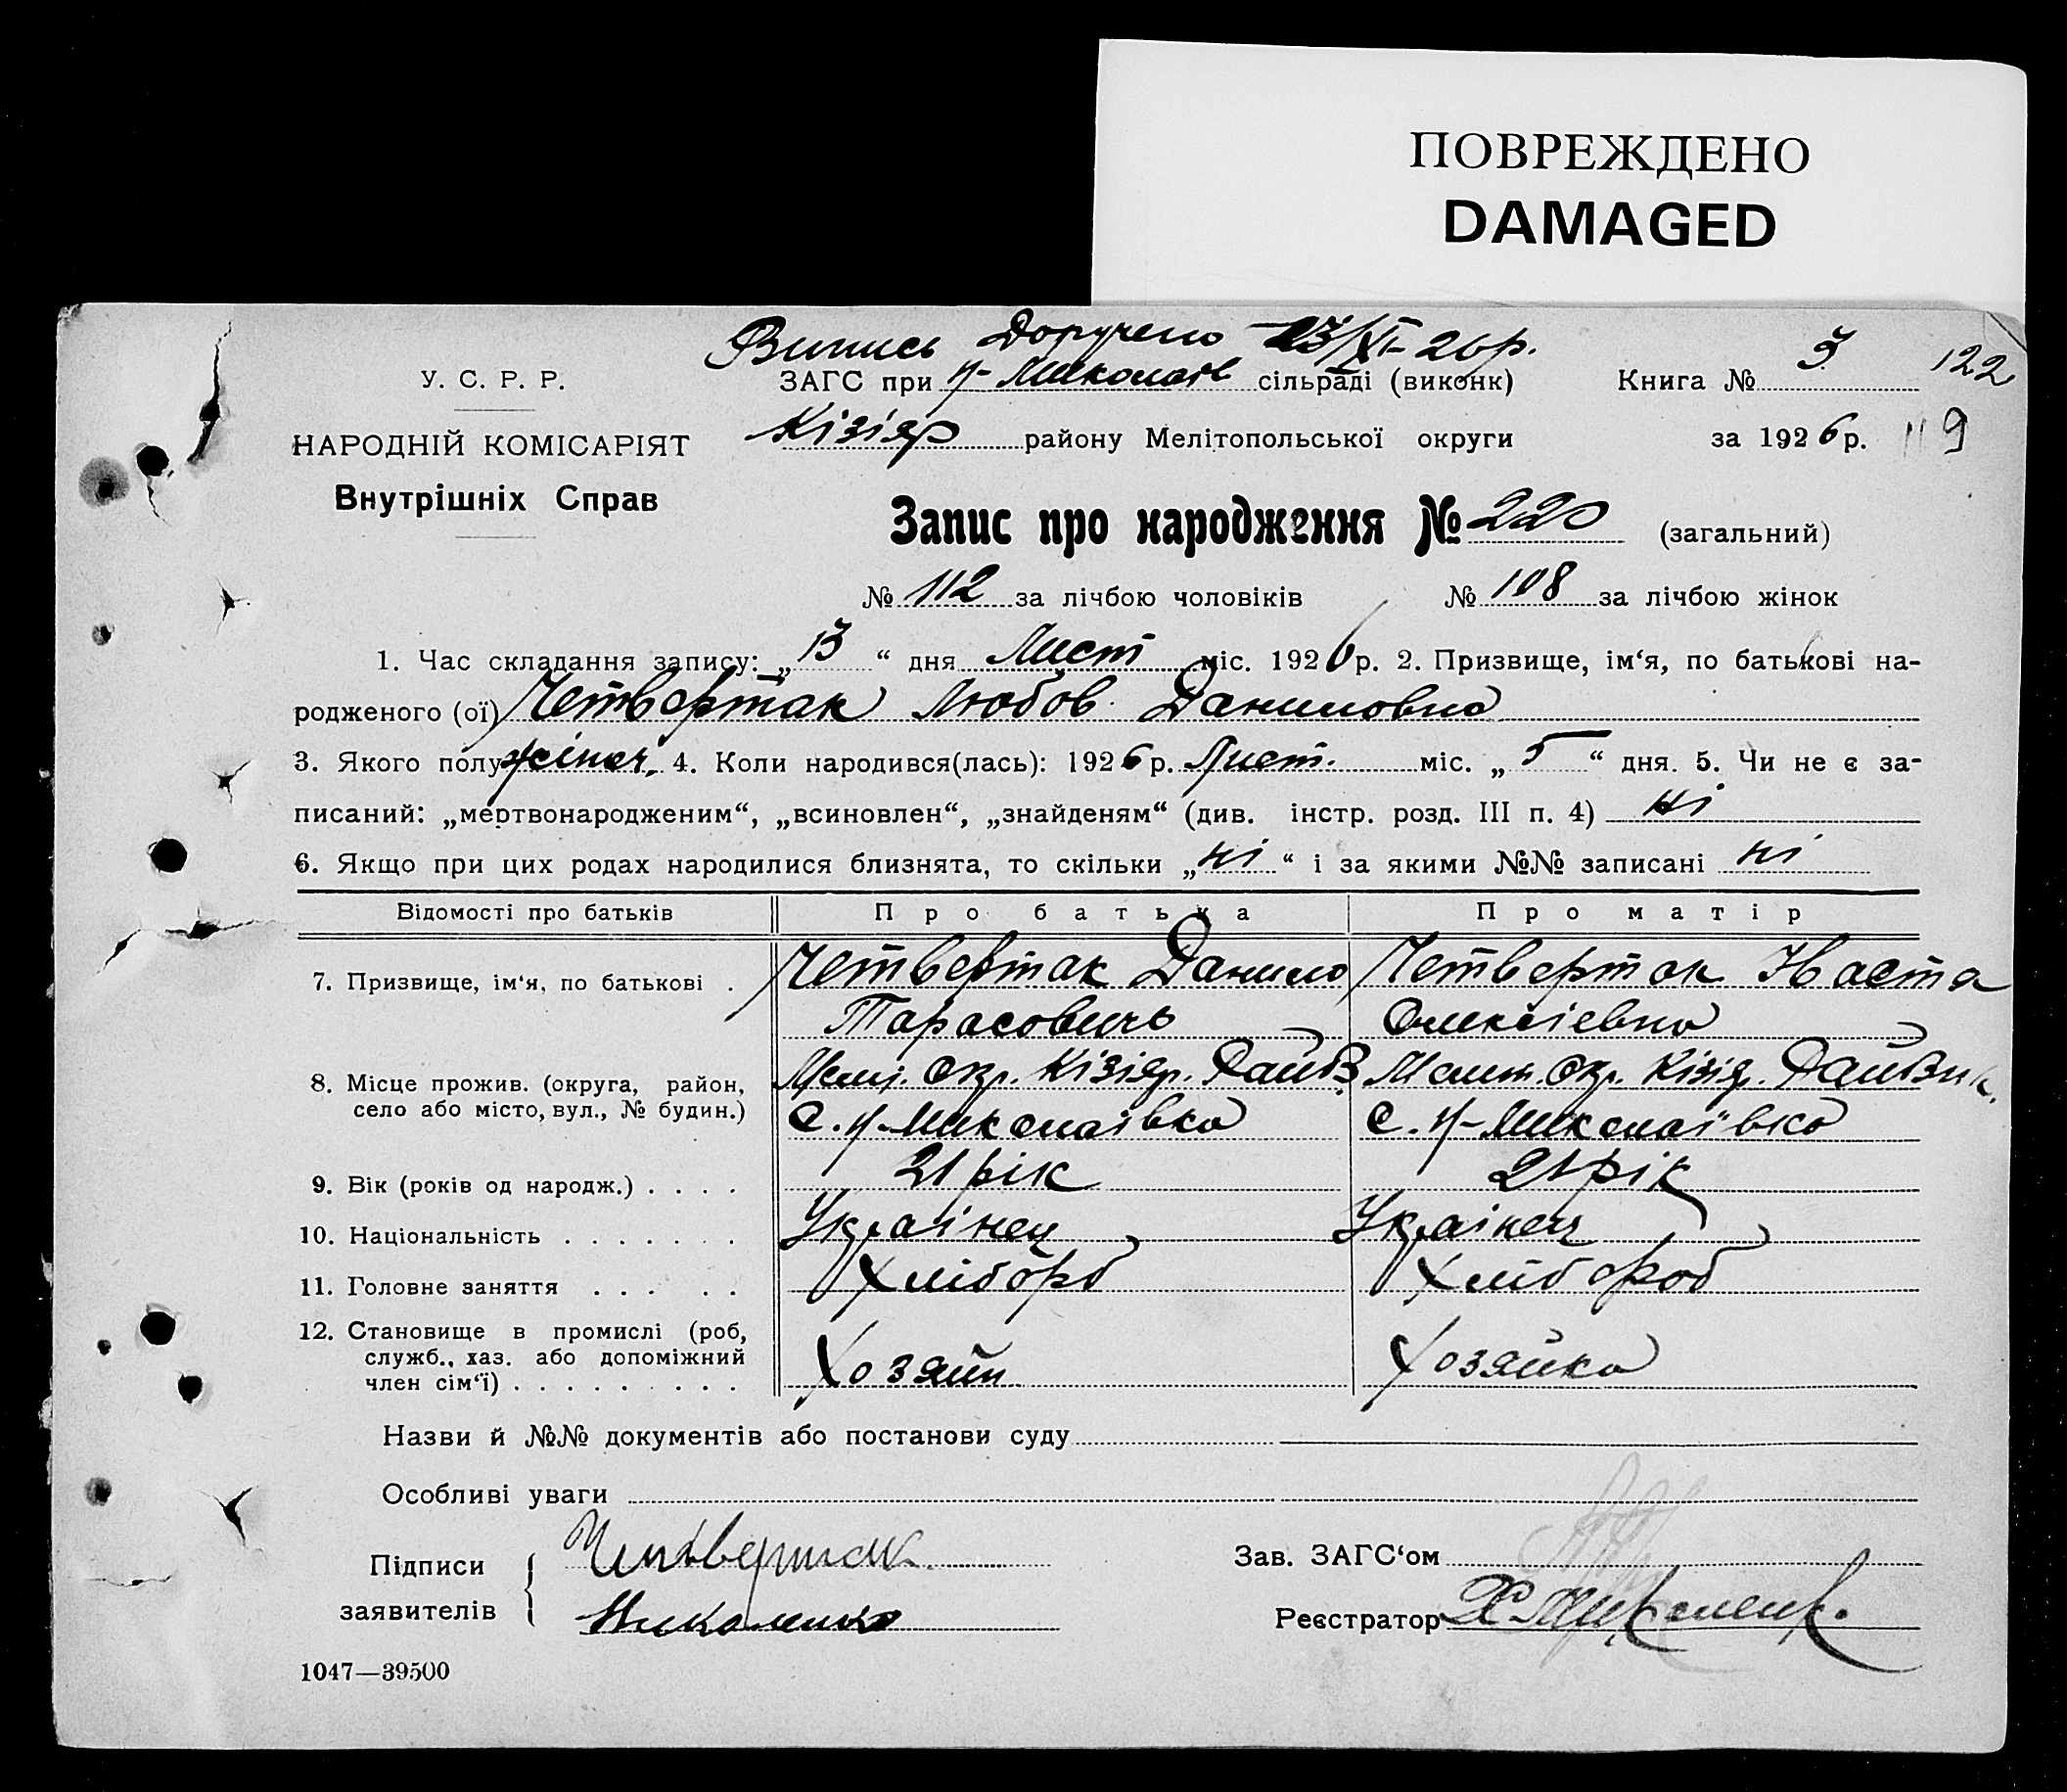 ПОВРЕЖДЕНО
DAMAGED
Випись Доручено 23/XI-26р.
У. С. Р. Р.
ЗАГС при Н-Миколаїв сільраді (виконк)
Книга № 3
122
НАРОДНІЙ КОМІСАРІЯТ
Кізіяр району Мелітопольської округи
за 1926 р.
119
Внутрішніх Справ
Запис про народження № 220 (загальний)
№ 112 за лічбою чоловіків № 108 за лічбою жінок
1. Час складання запису: „13“ дня Лист міс. 1926 р. 2. Призвище, ім‘я, по батькові на-
родженого (ої) Четвертак Любов Даниловна
3. Якого полу жіноч. 4. Коли народився(лась): 1926 р. Лист. міс. „5“ дня. 5. Чи не є за-
писаний: „мертвонародженим“, „всиновлен“, „знайденям“ (див. інстр. розд. III п. 4) ні
6. Якщо при цих родах народилися близнята, то скільки „ні“ і за якими №№ записані ні
Відомості про батьків Про батька Про матір
7. Призвище, ім‘я, по батькові . Четвертак Данило Четвертак Наста
Тарасовичь Олексіевна
8. Місце прожив. (округа, район, Меліт. Окр. Кізіяр. Мелит. Окр. Кізіяр.
село або місто, вул., № будин.) С. Н-Миколаівка С. Н-Миколаївка
9. Вік (років од народж.) . . . . 21 рік 21 рік
10. Національність . . . . . . . Украінец Украінец
11. Головне заняття . . . . . Хлібороб Хлібороб
12. Становище в промислі (роб,
служб., хаз. або допоміжний
член сім‘ї) . . . . . . . . . Хозяйн Хозяйка
Назви й №№ документів або постанови суду
Особливі уваги
Підписи
заявителів
Четвертак
Николенко
Зав. ЗАГС‘ом
Реєстратор
1047—39500